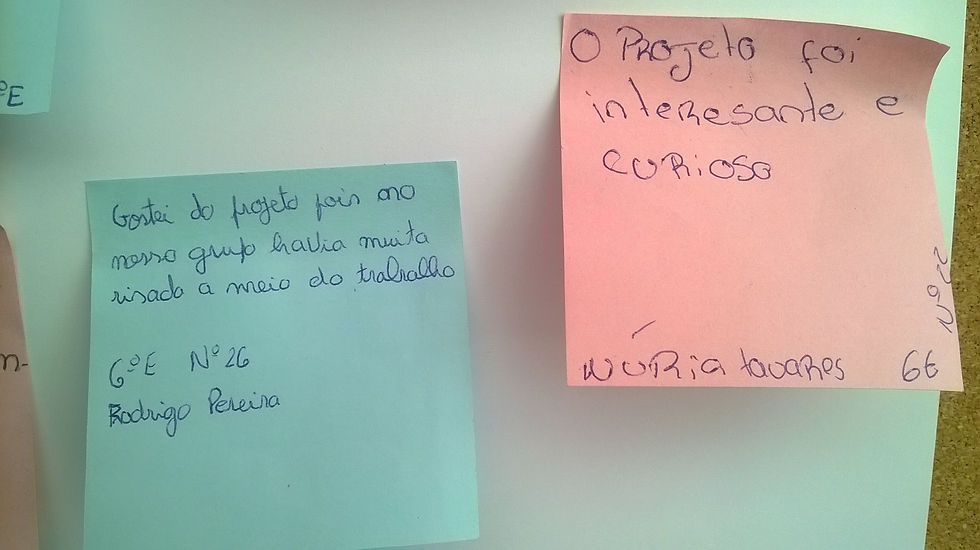 ºE
Gostei do projeto pois no
nosso grupo havia muita
risada a meio do trabalho
6ºE Nº26
Rodrigo Pereira
n-
O PRojeto foi
inteResante e
cuRioso
NúRia tavaRes 6E
Nº22